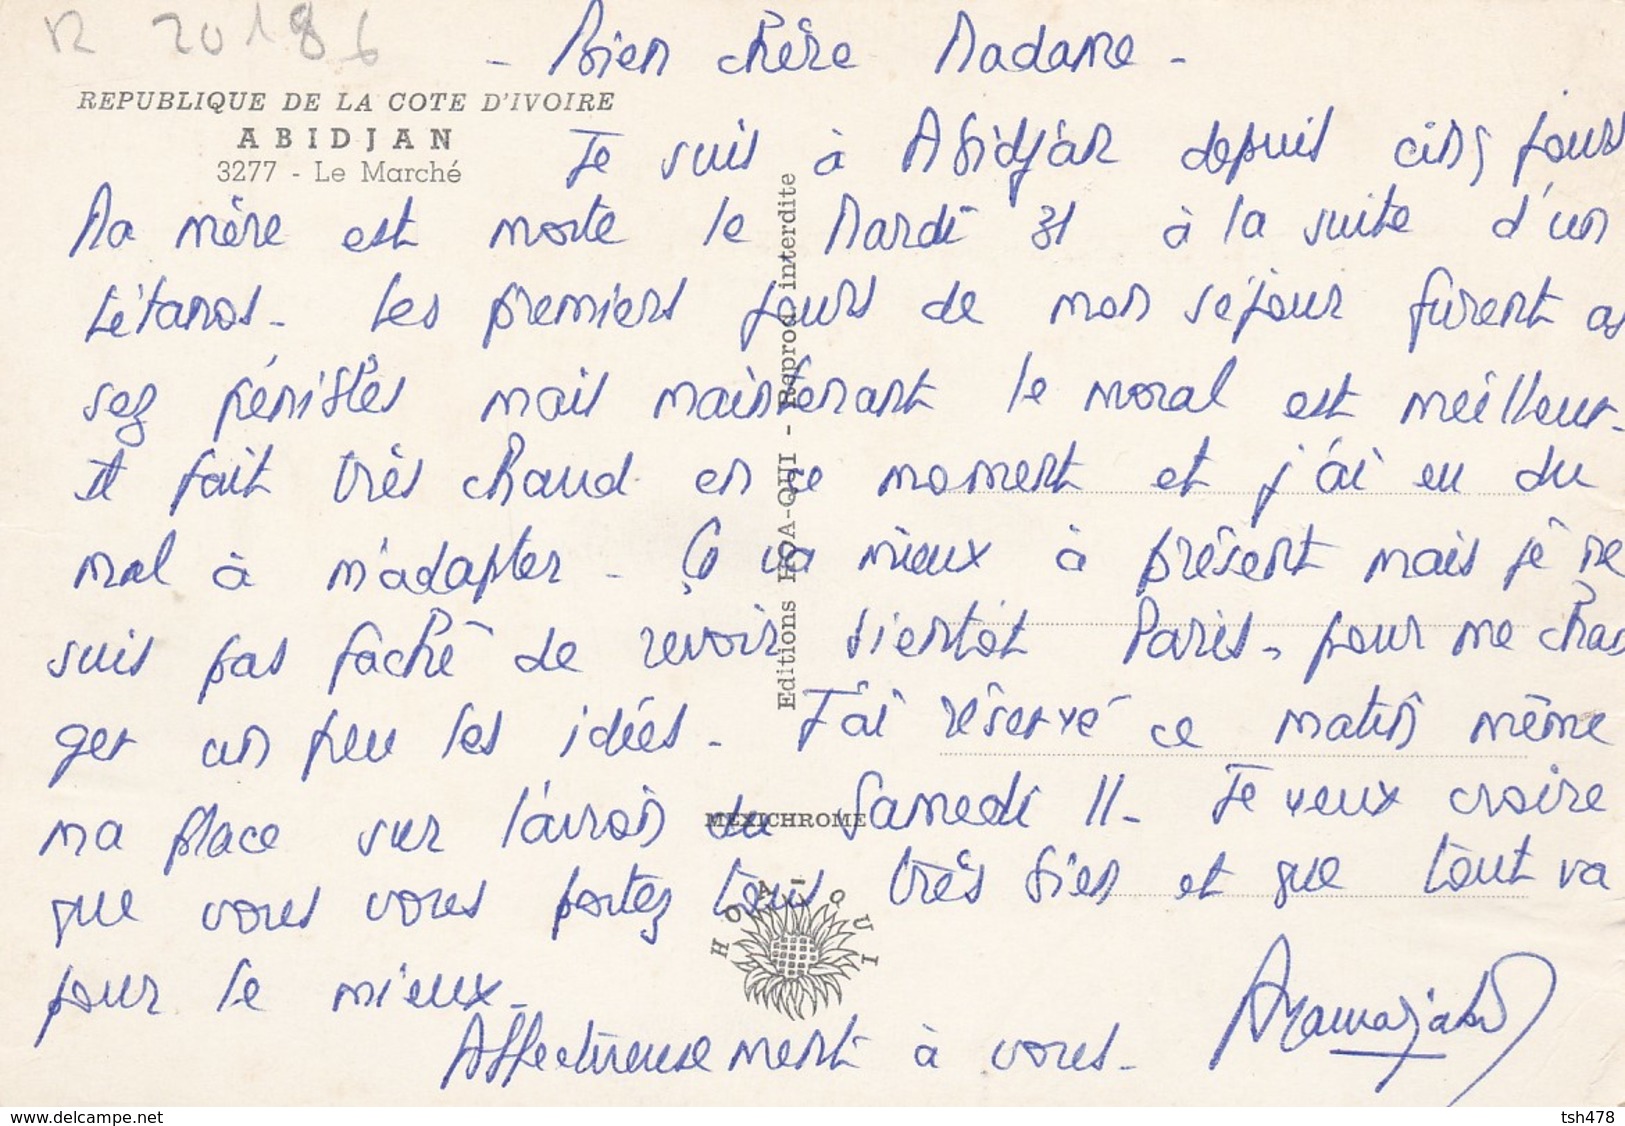 R 20186
- Bien chère Madame -
REPUBLIQUE DE LA COTE D'IVOIRE
ABIDJAN
3277 - Le Marché
Je suis à Abidjan depuis cinq jours
Ma mère est morte le Mardi 31 à la suite d'un
tétanos - Les premiers jours de mon séjour furent as
sez pénibles mais maintenant le moral est meilleur -
Il fait très chaud en ce moment et j'ai eu du
mal à m'adapter - Ça va mieux à présent mais je ne
suis pas faché de revoir bientôt Paris - pour me chan
ger un peu les idées - J'ai réservé ce matin même
ma place sur l'avion du Samedi 11 - Je veux croire
que vous vous portez tous très bien et que tout va
pour le mieux -
Affectueusement à vous -
Editions HOA-QUI - Reprod. interdite
MEXICHROME
HOA-QUI
www.delcampe.net
tsh478